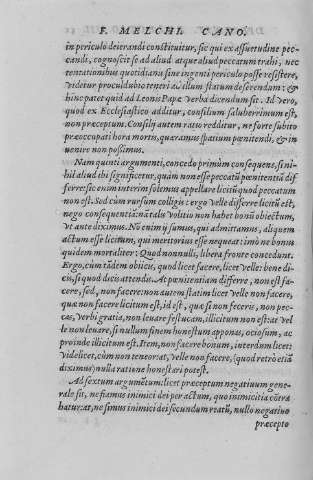 F. MELCHI. CANO.
in periculo deserandi constituitur, sic qui ex assuetudine pec-
candi, cognoscit se ad aliud atque aliud peccatum trahi, nec
tentationibus quotidianis sine ingenti periculo posse resistere,
videtur proculdubio teneri ad illum statum deserendum: &
hinc patet quid ad Leonis Papæ verba dicendum sit. Id vero,
quod ex Ecclesiastico additur, consilium saluberrimum est,
non præceptum. Consilij autem ratio redditur, ne forte subito
præoccupati hora mortis, quæramus spatium pœnitendi, & in-
uenire non possimus.
Nam quinti argumenti, concedo primũm consequens, si ni-
hil aliud ibi significetur, quàm non esse peccatũ pœnitentiã dif
ferre: sic enim interim solemus appellare licitũ quod peccatum
non est. Sed cum rursum colligis: ergo velle differre licitũ est,
nego consequentiã: nã talis volitio non habet bonũ obiectum,
vt ante diximus. Nõ enim ij sumus, qui admittamus, aliquem
actum esse licitum, qui meritorius esse nequeat: imò ne bonus
quidem moraliter: Quod nonnulli, libera fronte concedunt.
Ergo, cum tãdem obiicis, quod licet facere, licet velle: bene di-
cis, si quod dicis attendis. At pœnitentiam differre, non est fa-
cere, sed, non facere: non autem statim licet velle non facere,
quæ non facere licitum est, id est, quæ si non feceris, non pec-
cas, verbi gratia, non leuare festucam, illicitum non est: at vel-
le non leuare, si nullum finem honestum apponas, otiosum, ac
proinde illicitum est. Item, non facere bonum, interdum licet:
videlicet, cum non teneor: at, velle non facere, (quod retrò etiã
diximus) nulla ratione honestari potest.
Ad sextum argumẽtum: licet præceptum negatiuum gene-
rale sit, ne fiamus inimici dei per actum, quo inimicitia cõtra
hatur: at, ne simus inimici dei secundum reatũ, nullo negatiuo
præcepto